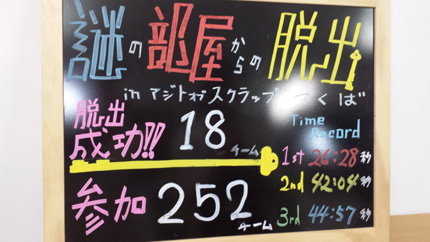 謎の部屋からの脱出
in アジトオブスクラップつくば
脱出成功!! 18チーム
参加 252チーム
Time Record
1st 26:28秒
2nd 42:04秒
3rd 44:57秒